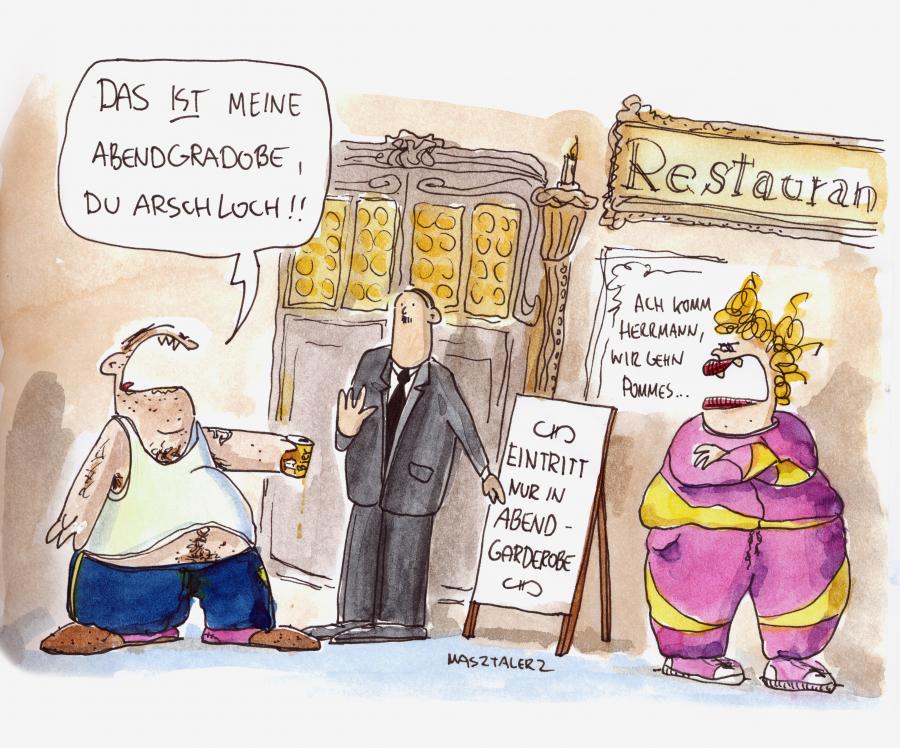 DAS IST MEINE
ABENDGRADOBE,
DU ARSCHLOCH!!
Restauran
ACH KOMM
HERRMANN,
WIR GEHN
POMMES...
Bier
EINTRITT
NUR IN
ABEND-
GARDEROBE
MASZTALERZ